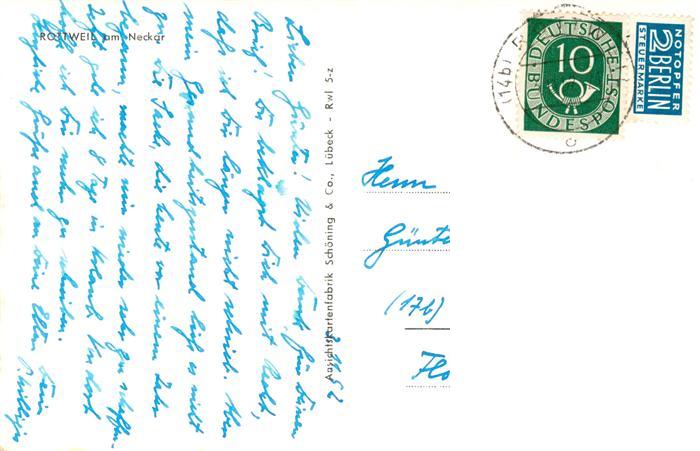 ROTTWEIL am Neckar
Lieber Günter! Vielen Dank für Deinen
Brief! Du beklagst Dich mit Recht,
daß ich Dir länger nicht schrieb. Aber
mein Gesundheitszustand ließ es nicht
die Sache, die heute vor einem Jahr
macht mir wieder sehr zu schaffen
8 Tage in Urlaub
ich Dir mehr zu schreiben.
Grüße auch an Deine Eltern Dein
2.11.52
Ansichtskartenfabrik Schöning & Co., Lübeck - Rwl 5-z
(14b)
DEUTSCHE BUNDESPOST
10
NOTOPFER
2 BERLIN
STEUERMARKE
Herrn
Günte
(17b)
Flo